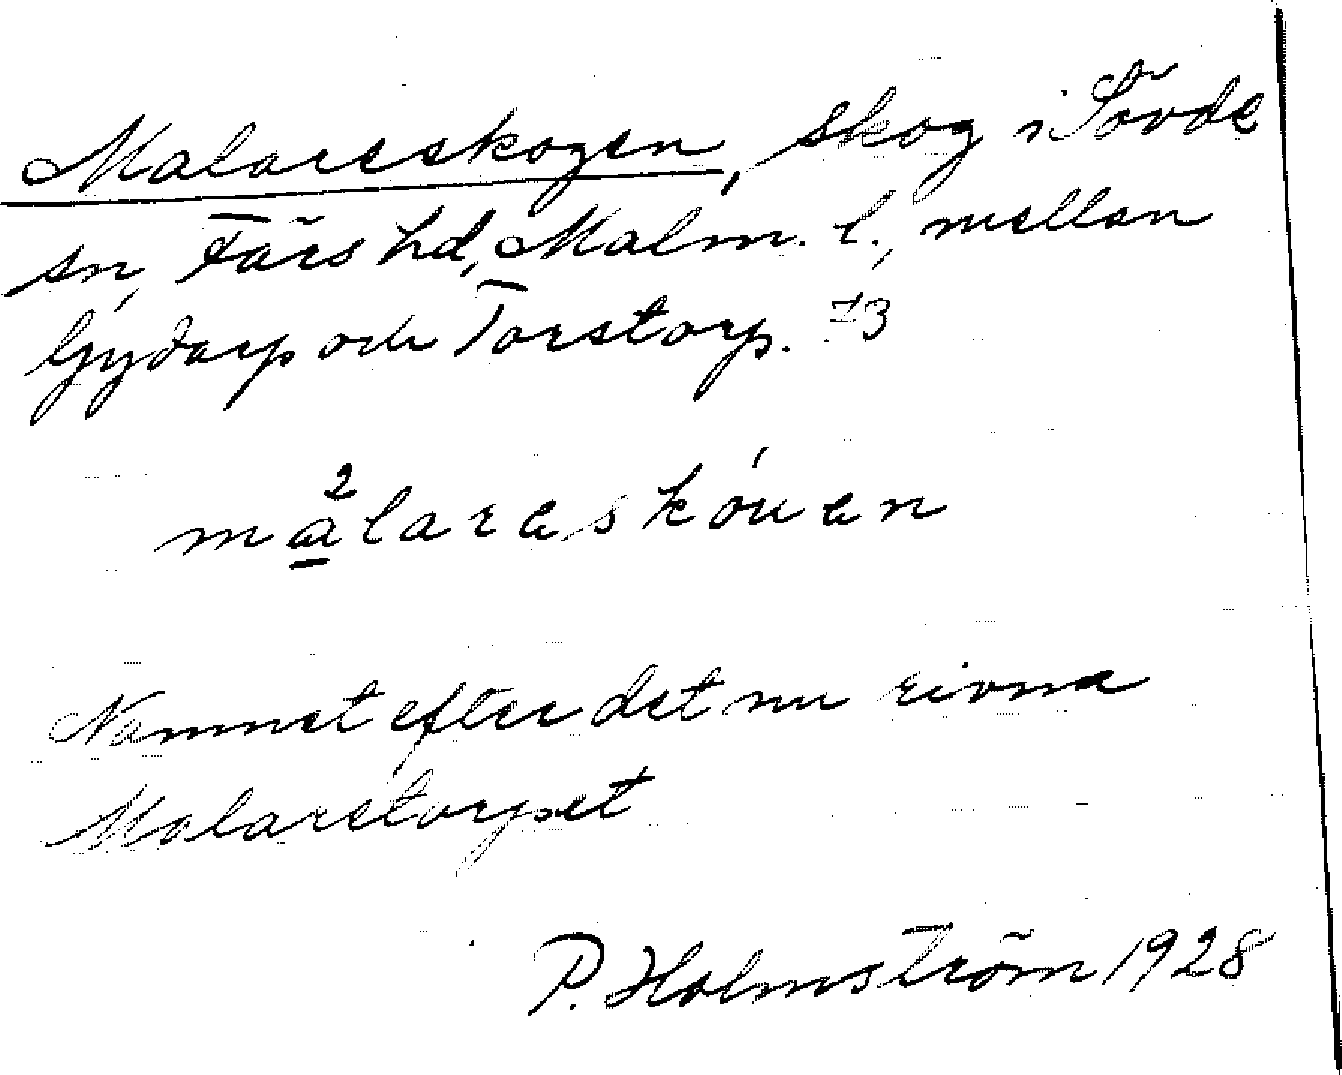 Malareskogen, skog i Sövde
sn, Färs hd, Malm. l., mellan
Gydarp och Torstorp. 73
ma²lareskóuen
Namnet efter det nu rivna
Malaretorpet
P. Holmström 1928